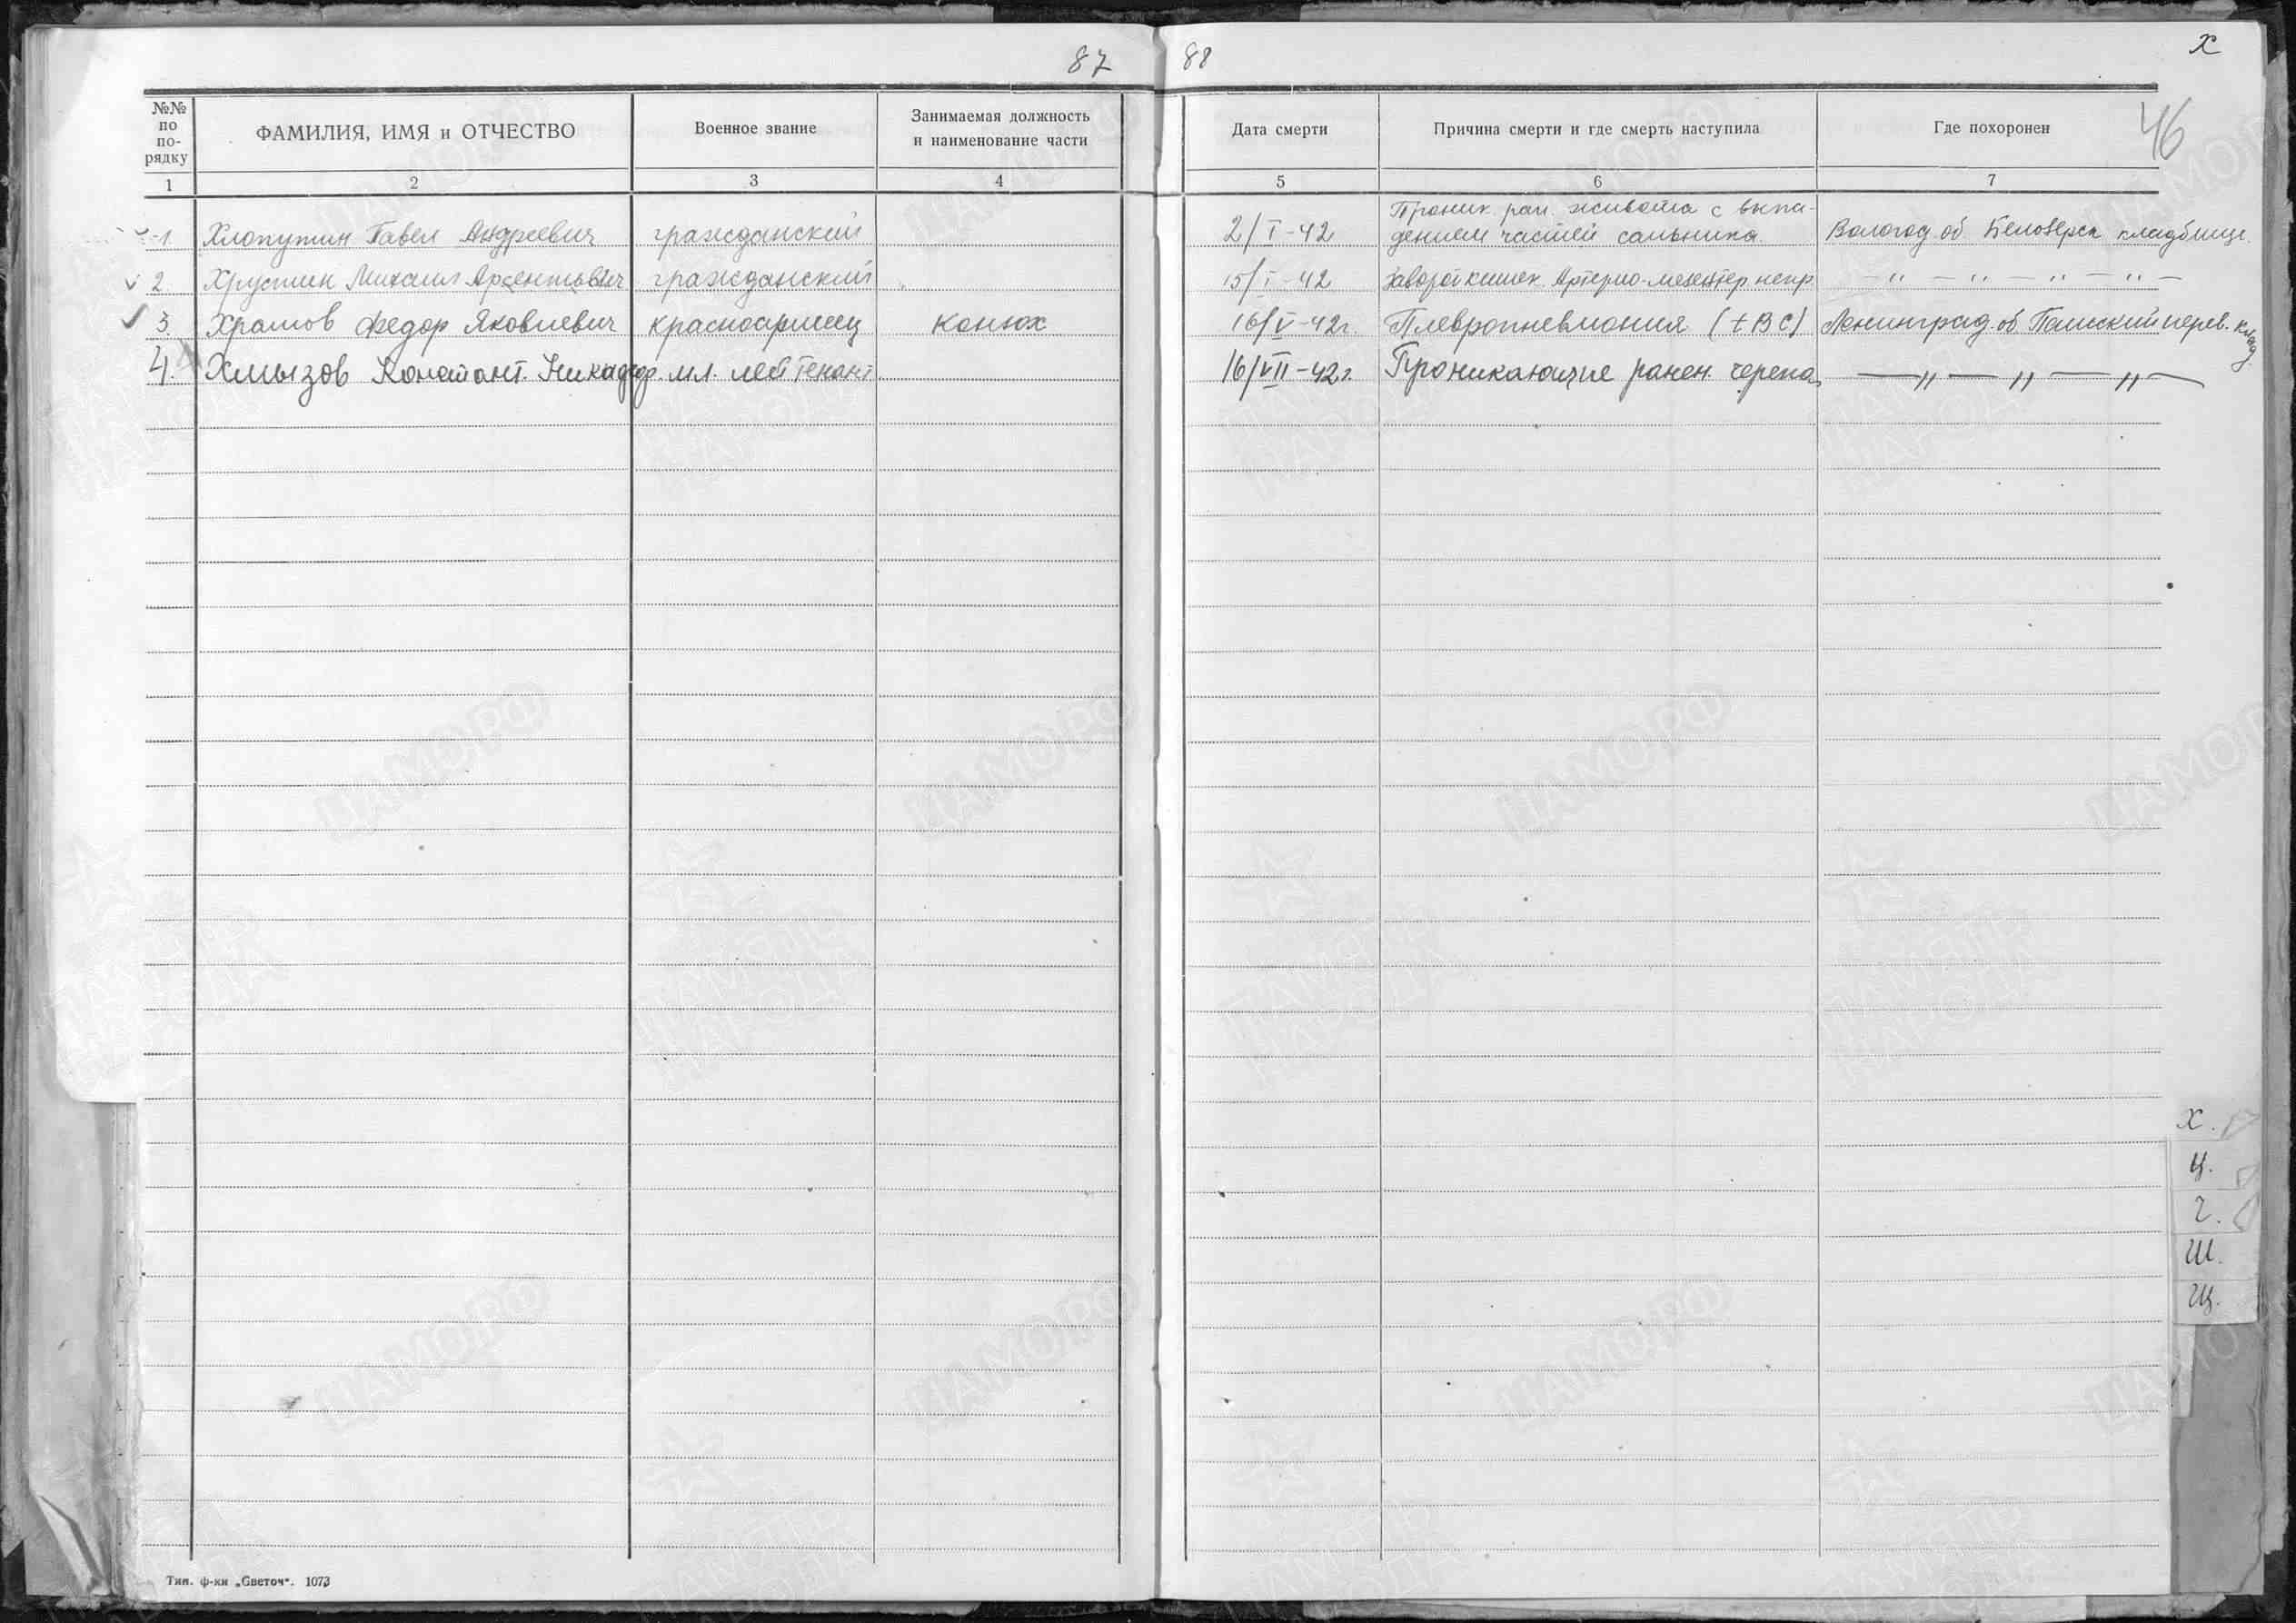 87
88
Х
46
№№ по по-рядку
ФАМИЛИЯ, ИМЯ и ОТЧЕСТВО
Военное звание
Занимаемая должность
и наименование части
Дата смерти
Причина смерти и где смерть наступила
Где похоронен
1 2 3 4 5 6 7
Проник. ран. живота с выпа-
1 Хлопутин Павел Андреевич гражданский 2/I-42 дением частей сальника Вологод. об Белозерск кладбище
2. Хрустин Михаил Арсентьевич гражданский 15/I-42 Заворот кишек. Артерио-мезентер непр. — " — " — " — " —
3. Храмов Федор Яковлевич красноармеец конюх 16/V-42г. Плевропневмония (tBC) Ленинград. об Пашский перев. клад.
4. Хмызов Констант. Никафор. мл. лейтенант 16/VII-42г. Проникающие ранен. черепа — " — " — " —
Х.
Ц.
Ч.
Ш.
Щ.
Тип. ф-ки „Светоч". 1073
ЦАМО.РФ
ПАМЯТЬ НАРОДА